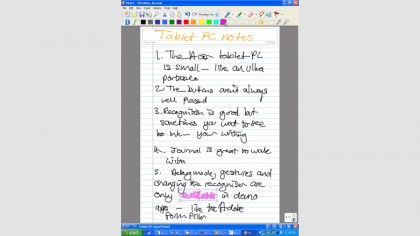 Tablet PC notes
1. The Acer tablet PC
is small – like an ultra
portable
2. The buttons aren't always
well placed
3. Recognition is good but
sometimes you want to see
be ink – your writing
4. Journal is great to work
with
5. Delay mode, gestures and
changing the recogniser are
only available in demo
apps – like the Adobe
Form Filler
Tablet PC Input Panel